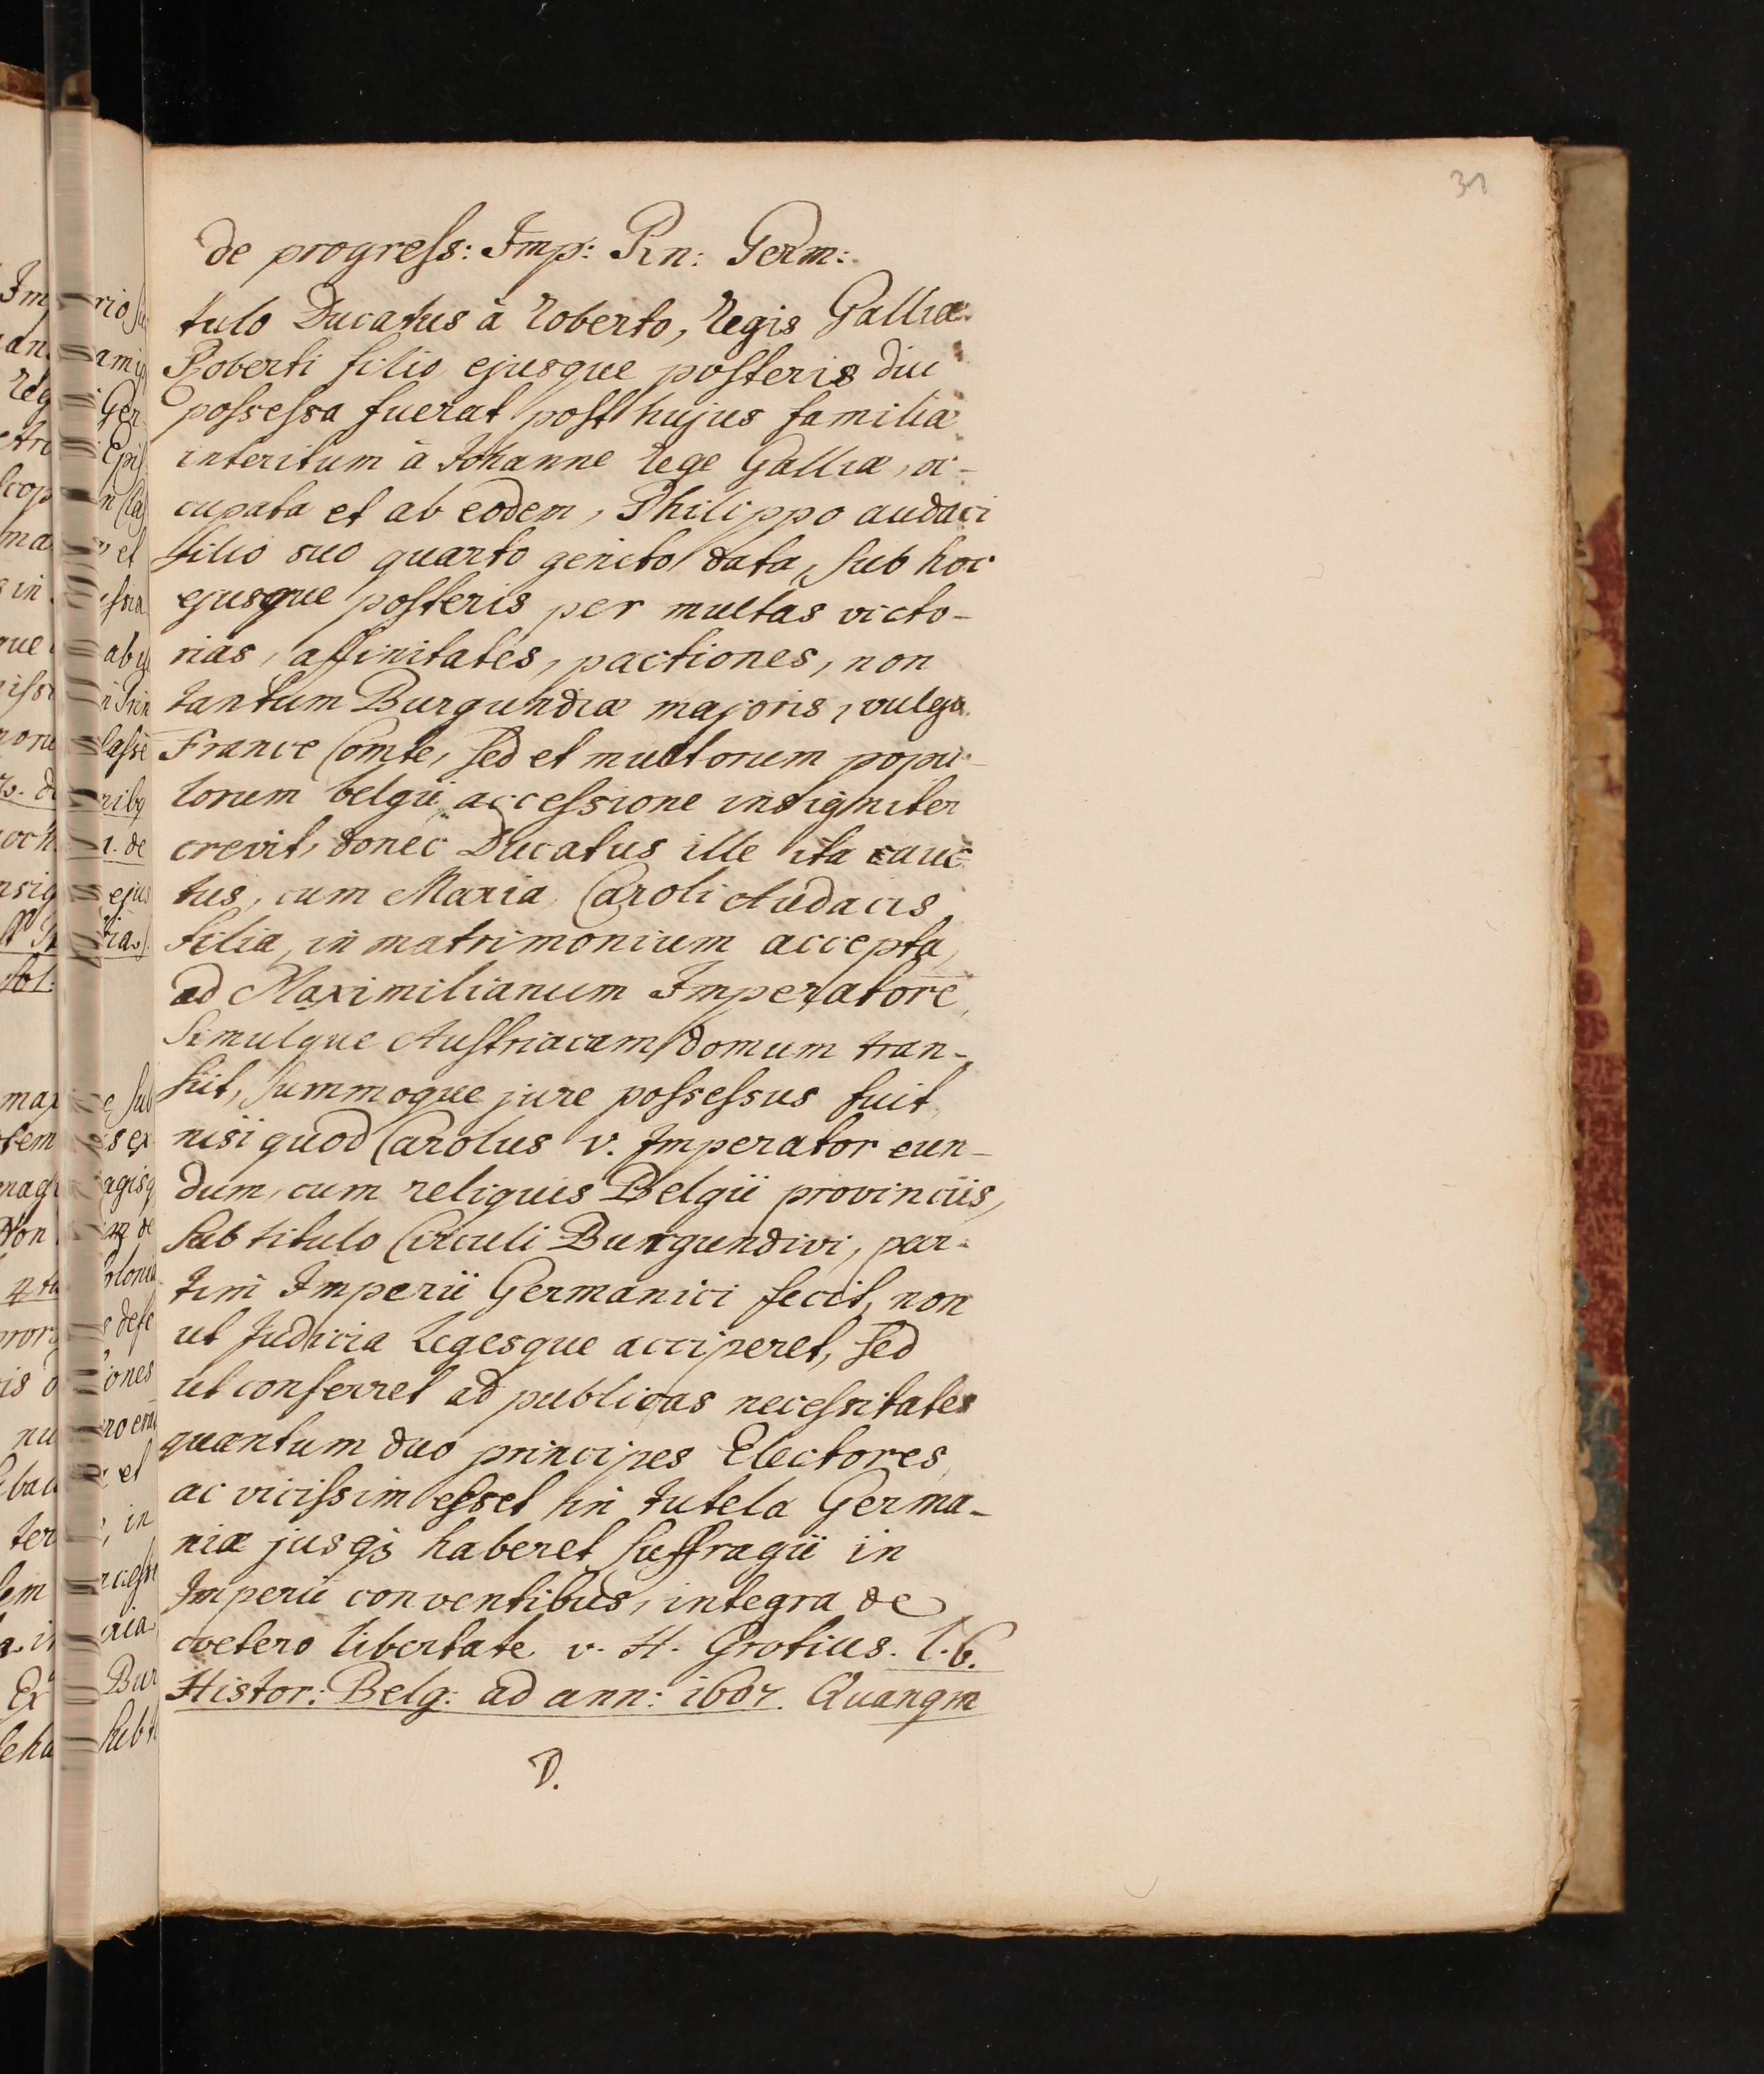 31
de progress: Imp: Rn: Germ:
tulo Ducatus à Roberto, Regis Galliæ
Roberti filio ejusque posteris diu
possessa fuerat post hujus familiæ
interitum à Johanne Rege Galliæ, oc-
cupata et ab eodem, Philippo audaci
filio suo quarto genito data, sub hoc
ejusque posteris per multas victo-
rias, affinitates, pactiones, non
tantum Burgundiæ majoris, vulgo
France Comte, sed et multorum popu-
lorum belgii accessione insigniter
crevit, donec Ducatus ille ita auc
tus, cum Maria, Caroli Audacis
filia, in matrimonium accepta,
ad Maximilianum Imperatorē,
simulque Austriacam domum tran-
siit, summoque jure possessus fuit,
nisi quod Carolus v. Imperator eun-
dum, cum reliquis Belgii provinciis,
sub titulo Circuli Burgundici, par-
tem Imperii Germanici fecit, non
ut Judicia Legesque acciperet, sed
ut conferret ad publicas necessitates
quantum duo principes Electores,
ac vicissim esset in tutela Germa-
niæ jusqȝ haberet suffragii in
Imperii conventibus, integra de
cœtero libertate v. H. Grotius. l. 6.
Histor: Belg: ad ann: 1607. Quanqm
D.